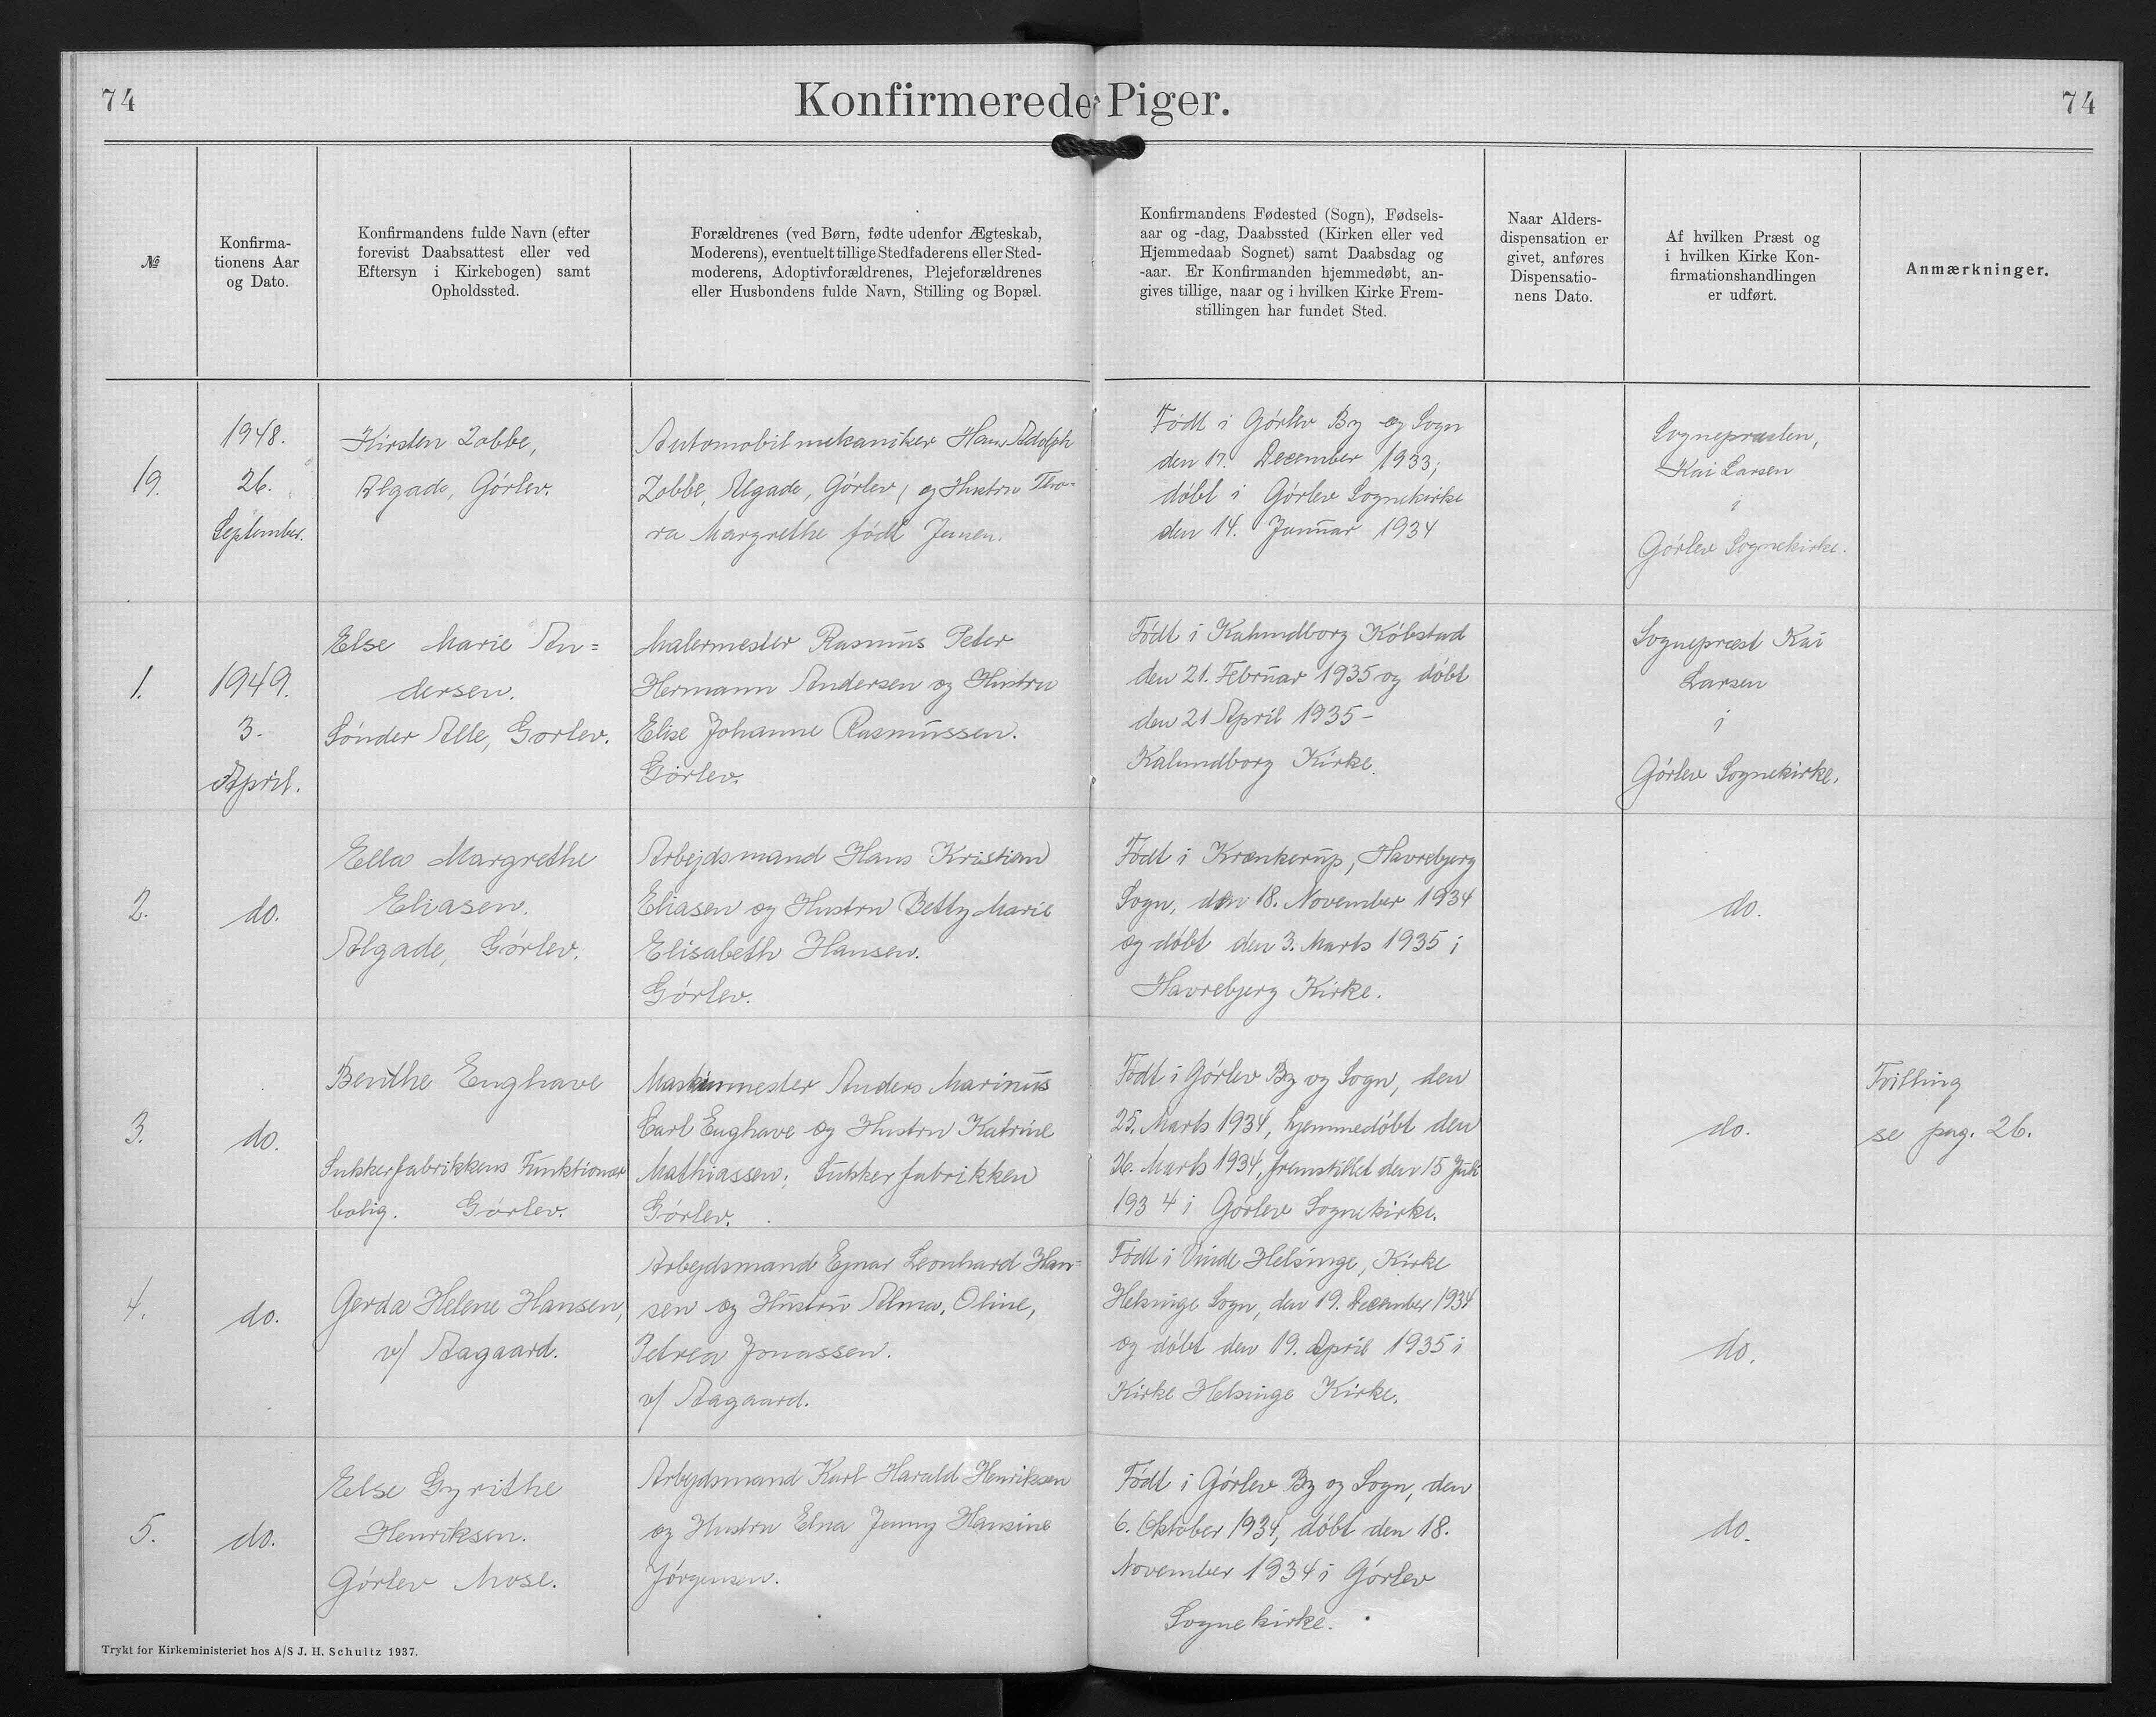 74
Konfirmerede Piger.
74
№
Konfirma-
tionens Aar
og Dato.
Konfirmandens fulde Navn (efter
forevist Daabsattest eller ved
Eftersyn i Kirkebogen) samt
Opholdssted.
Forældrenes (ved Børn, fødte udenfor Ægteskab,
Moderens), eventuelt tillige Stedfaderens eller Sted-
moderens, Adoptivforældrenes, Plejeforældrenes
eller Husbondens fulde Navn, Stilling og Bopæl.
Konfirmandens Fødested (Sogn), Fødsels-
aar og -dag, Daabssted (Kirken eller ved
Hjemmedaab Sognet) samt Daabsdag og
-aar. Er Konfirmanden hjemmedøbt, an-
gives tillige, naar og i hvilken Kirke Frem-
stillingen har fundet Sted.
Naar Alders-
dispensation er
givet, anføres
Dispensatio-
nens Dato.
Af hvilken Præst og
i hvilken Kirke Kon-
firmationshandlingen
er udført.
Anmærkninger.
19.
1948.
26.
September.
Kirsten Zobbe,
Algade, Gørlev.
Automobilmekaniker Hans Adolph
Zobbe, Algade, Gørlev, og Hustru Tho-
ra Margrethe født Jensen.
Født i Gørlev By og Sogn
den 17. December 1933;
døbt i Gørlev Sognekirke
den 14. Januar 1934
Sognepræsten,
Kai Larsen
i
Gørlev Sognekirke.
1.
1949.
3.
April.
Else Marie An=
dersen.
Sønder Alle, Gørlev.
Malermester Rasmus Peter
Hermann Andersen og Hustru
Elise Johanne Rasmussen.
Gørlev.
Født i Kalundborg Købstad
den 21. Februar 1935 og døbt
den 21 April 1935 -
Kalundborg Kirke.
Sognepræst Kai
Larsen
i
Gørlev Sognekirke.
2.
do.
Ella Margrethe
Eliasen.
Algade, Gørlev.
Arbejdsmand Hans Kristian
Eliasen og Hustru Betty Marie
Elisabeth Hansen.
Gørlev.
Født i Krænkerup, Havrebjerg
Sogn, den 18. November 1934
og døbt den 3. Marts 1935 i
Havrebjerg Kirke.
do.
3.
do.
Benthe Enghave
Sukkerfabrikkens Funktionær
bolig. Gørlev.
Maskinmester Anders Marinus
Carl Enghave og Hustru Katrine
Mathiassen; Sukkerfabrikken
Gørlev.
Født i Gørlev By og Sogn, den
25. Marts 1934, hjemmedøbt den
26. Marts 1934, fremstillet den 15 Juli
1934 i Gørlev Sognekirke.
do.
Tvilling
se pag. 26.
4.
do.
Gerda Helene Hansen,
v/ Aagaard.
Arbejdsmand Ejnar Leonhard Han=
sen og Hustru Alma, Oline,
Petrea Jonassen.
v/ Aagaard.
Født i Vinde Helsinge, Kirke
Helsinge Sogn, den 19. December 1934
og døbt den 19. April 1935 i
Kirke Helsinge Kirke.
do.
5.
do.
Else Gyrithe
Henriksen.
Gørlev Mose.
Arbejdsmand Karl Harald Henriksen
og Hustru Elna Jenny Hansine
Jørgensen.
Født i Gørlev By og Sogn, den
6. Oktober 1934, døbt den 18.
November 1934 i Gørlev
Sognekirke.
do.
Trykt for Kirkeministeriet hos A/S J. H. Schultz 1937.